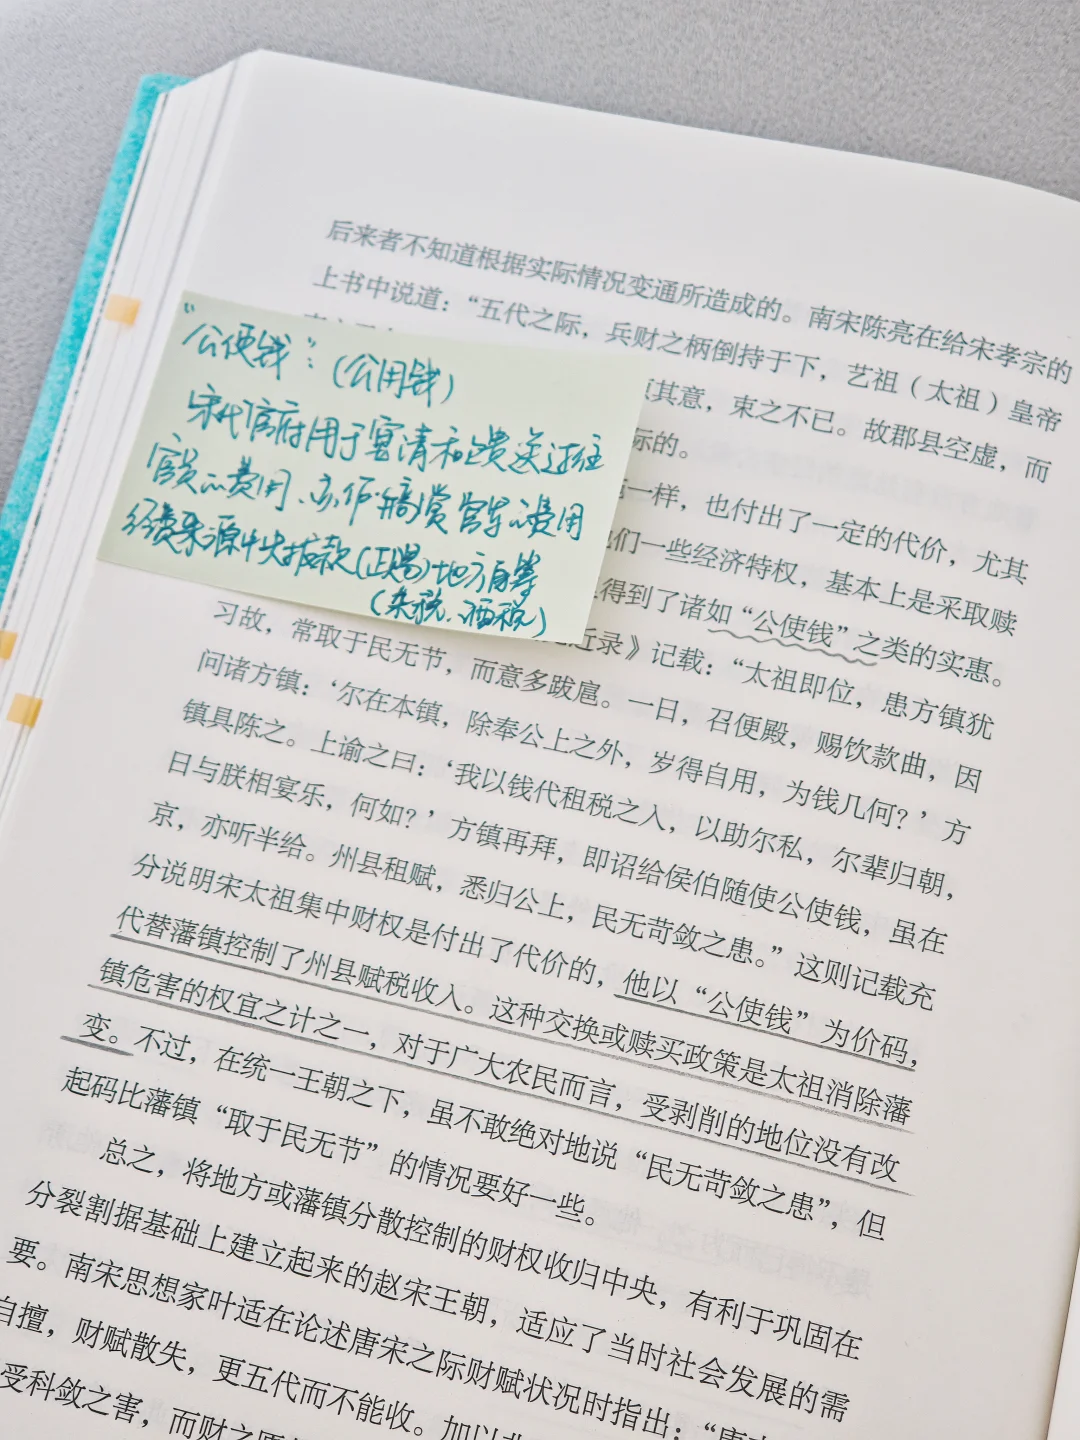 后来者不知道根据实际情况变通所造成的。南宋陈亮在给宋孝宗的
上书中说道：“五代之际，兵财之柄倒持于下，艺祖（太祖）皇帝
其意，束之不已。故郡县空虚，而
际的。
一样，也付出了一定的代价，尤其
们一些经济特权，基本上是采取赎
得到了诸如“公使钱”之类的实惠。
近录》记载：“太祖即位，患方镇犹
“公使钱”：（公用钱）
宋代官府用于宴请和馈送过往
官员的费用、亦作犒赏官军的费用
经费来源中央拨款（正赐）地方自筹
（杂税、酒税）
习故，常取于民无节，而意多跋扈。一日，召便殿，赐饮款曲，因
问诸方镇：‘尔在本镇，除奉公上之外，岁得自用，为钱几何？’方
镇具陈之。上谕之曰：‘我以钱代租税之入，以助尔私，尔辈归朝，
日与朕相宴乐，何如？’方镇再拜，即诏给侯伯随使公使钱，虽在
京，亦听半给。州县租赋，悉归公上，民无苛敛之患。”这则记载充
分说明宋太祖集中财权是付出了代价的，他以“公使钱”为价码，
代替藩镇控制了州县赋税收入。这种交换或赎买政策是太祖消除藩
镇危害的权宜之计之一，对于广大农民而言，受剥削的地位没有改
变。不过，在统一王朝之下，虽不敢绝对地说“民无苛敛之患”，但
起码比藩镇“取于民无节”的情况要好一些。
总之，将地方或藩镇分散控制的财权收归中央，有利于巩固在
分裂割据基础上建立起来的赵宋王朝，适应了当时社会发展的需
要。南宋思想家叶适在论述唐宋之际财赋状况时指出：“唐
自擅，财赋散失，更五代而不能收。加以
受科敛之害，而财之